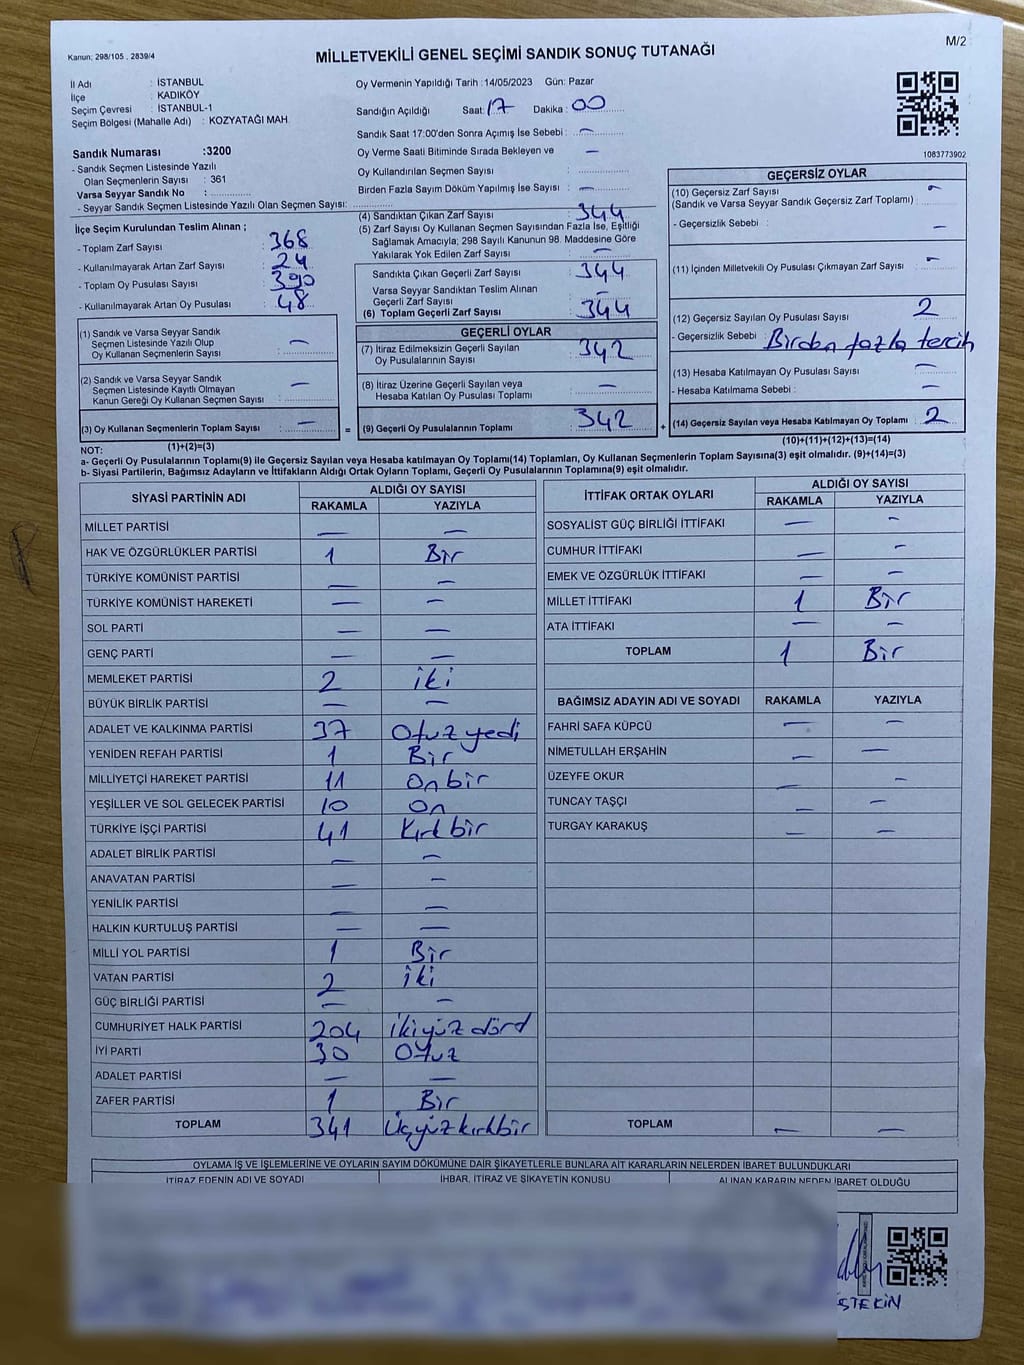 M/2
Kanun: 298/105 , 2839/4
MİLLETVEKİLİ GENEL SEÇİMİ SANDIK SONUÇ TUTANAĞI
İl Adı : İSTANBUL
İlçe : KADIKÖY
Seçim Çevresi : İSTANBUL-1
Seçim Bölgesi (Mahalle Adı) : KOZYATAĞI MAH.
Sandık Numarası :3200
- Sandık Seçmen Listesinde Yazılı
Olan Seçmenlerin Sayısı : 361
Varsa Seyyar Sandık No :
- Seyyar Sandık Seçmen Listesinde Yazılı Olan Seçmen Sayısı:
Oy Vermenin Yapıldığı Tarih : 14/05/2023 Gün: Pazar
Sandığın Açıldığı Saat: 17 Dakika : 00
Sandık Saat 17:00'den Sonra Açımış İse Sebebi : —
Oy Verme Saati Bitiminde Sırada Bekleyen ve —
Oy Kullandırılan Seçmen Sayısı :
Birden Fazla Sayım Döküm Yapılmış İse Sayısı : —
1083773902
İlçe Seçim Kurulundan Teslim Alınan ;
- Toplam Zarf Sayısı : 368
- Kullanılmayarak Artan Zarf Sayısı : 24
- Toplam Oy Pusulası Sayısı : 390
- Kullanılmayarak Artan Oy Pusulası : 48
(1) Sandık ve Varsa Seyyar Sandık
Seçmen Listesinde Yazılı Olup
Oy Kullanan Seçmenlerin Sayısı : —
(2) Sandık ve Varsa Seyyar Sandık
Seçmen Listesinde Kayıtlı Olmayan
Kanun Gereği Oy Kullanan Seçmen Sayısı : —
(3) Oy Kullanan Seçmenlerin Toplam Sayısı : —
(1)+(2)=(3)
(4) Sandıktan Çıkan Zarf Sayısı : 344
(5) Zarf Sayısı Oy Kullanan Seçmen Sayısından Fazla İse, Eşitliği
Sağlamak Amacıyla; 298 Sayılı Kanunun 98. Maddesine Göre
Yakılarak Yok Edilen Zarf Sayısı : —
Sandıkta Çıkan Geçerli Zarf Sayısı : 344
Varsa Seyyar Sandıktan Teslim Alınan
Geçerli Zarf Sayısı : —
(6) Toplam Geçerli Zarf Sayısı : 344
GEÇERLİ OYLAR
(7) İtiraz Edilmeksizin Geçerli Sayılan
Oy Pusulalarının Sayısı : 342
(8) İtiraz Üzerine Geçerli Sayılan veya
Hesaba Katılan Oy Pusulası Toplamı : —
= (9) Geçerli Oy Pusulalarının Toplamı : 342 +
GEÇERSİZ OYLAR
(10) Geçersiz Zarf Sayısı : —
(Sandık ve Varsa Seyyar Sandık Geçersiz Zarf Toplamı)
- Geçersizlik Sebebi : —
(11) İçinden Milletvekili Oy Pusulası Çıkmayan Zarf Sayısı : —
(12) Geçersiz Sayılan Oy Pusulası Sayısı : 2
- Geçersizlik Sebebi : Birden fazla tercih
(13) Hesaba Katılmayan Oy Pusulası Sayısı : —
- Hesaba Katılmama Sebebi : —
(14) Geçersiz Sayılan veya Hesaba Katılmayan Oy Toplamı : 2
(10)+(11)+(12)+(13)=(14)
NOT:
a- Geçerli Oy Pusulalarının Toplamı(9) ile Geçersiz Sayılan veya Hesaba katılmayan Oy Toplamı(14) Toplamları, Oy Kullanan Seçmenlerin Toplam Sayısına(3) eşit olmalıdır. (9)+(14)=(3)
b- Siyasi Partilerin, Bağımsız Adayların ve İttifakların Aldığı Ortak Oyların Toplamı, Geçerli Oy Pusulalarının Toplamına(9) eşit olmalıdır.
SİYASİ PARTİNİN ADI ALDIĞI OY SAYISI
RAKAMLA YAZIYLA
MİLLET PARTİSİ — —
HAK VE ÖZGÜRLÜKLER PARTİSİ 1 Bir
TÜRKİYE KOMÜNİST PARTİSİ — —
TÜRKİYE KOMÜNİST HAREKETİ — —
SOL PARTİ — —
GENÇ PARTİ — —
MEMLEKET PARTİSİ 2 iki
BÜYÜK BİRLİK PARTİSİ — —
ADALET VE KALKINMA PARTİSİ 37 Otuz yedi
YENİDEN REFAH PARTİSİ 1 Bir
MİLLİYETÇİ HAREKET PARTİSİ 11 On bir
YEŞİLLER VE SOL GELECEK PARTİSİ 10 On
TÜRKİYE İŞÇİ PARTİSİ 41 Kırk bir
ADALET BİRLİK PARTİSİ — —
ANAVATAN PARTİSİ — —
YENİLİK PARTİSİ — —
HALKIN KURTULUŞ PARTİSİ — —
MİLLİ YOL PARTİSİ 1 Bir
VATAN PARTİSİ 2 iki
GÜÇ BİRLİĞİ PARTİSİ — —
CUMHURİYET HALK PARTİSİ 204 ikiyüz dörd
İYİ PARTİ 30 Otuz
ADALET PARTİSİ — —
ZAFER PARTİSİ 1 Bir
TOPLAM 341 Üçyüz kırkbir
İTTİFAK ORTAK OYLARI ALDIĞI OY SAYISI
RAKAMLA YAZIYLA
SOSYALİST GÜÇ BİRLİĞİ İTTİFAKI — —
CUMHUR İTTİFAKI — —
EMEK VE ÖZGÜRLÜK İTTİFAKI — —
MİLLET İTTİFAKI 1 Bir
ATA İTTİFAKI — —
TOPLAM 1 Bir
BAĞIMSIZ ADAYIN ADI VE SOYADI RAKAMLA YAZIYLA
FAHRİ SAFA KÜPCÜ — —
NİMETULLAH ERŞAHİN — —
ÜZEYFE OKUR — —
TUNCAY TAŞÇI — —
TURGAY KARAKUŞ — —
TOPLAM — —
OYLAMA İŞ VE İŞLEMLERİNE VE OYLARIN SAYIM DÖKÜMÜNE DAİR ŞİKAYETLERLE BUNLARA AİT KARARLARIN NELERDEN İBARET BULUNDUKLARI
İTİRAZ EDENİN ADI VE SOYADI İHBAR, İTİRAZ VE ŞİKAYETİN KONUSU ALINAN KARARIN NEDEN İBARET OLDUĞU